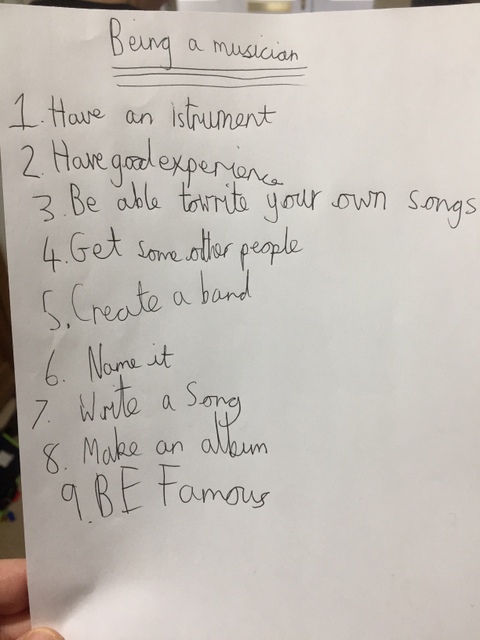 Being a musician
1. Have an istrument
2. Have good experience
3. Be able to write your own songs
4. Get some other people
5. Create a band
6. Name it
7. Write a Song
8. Make an album
9. BE Famous